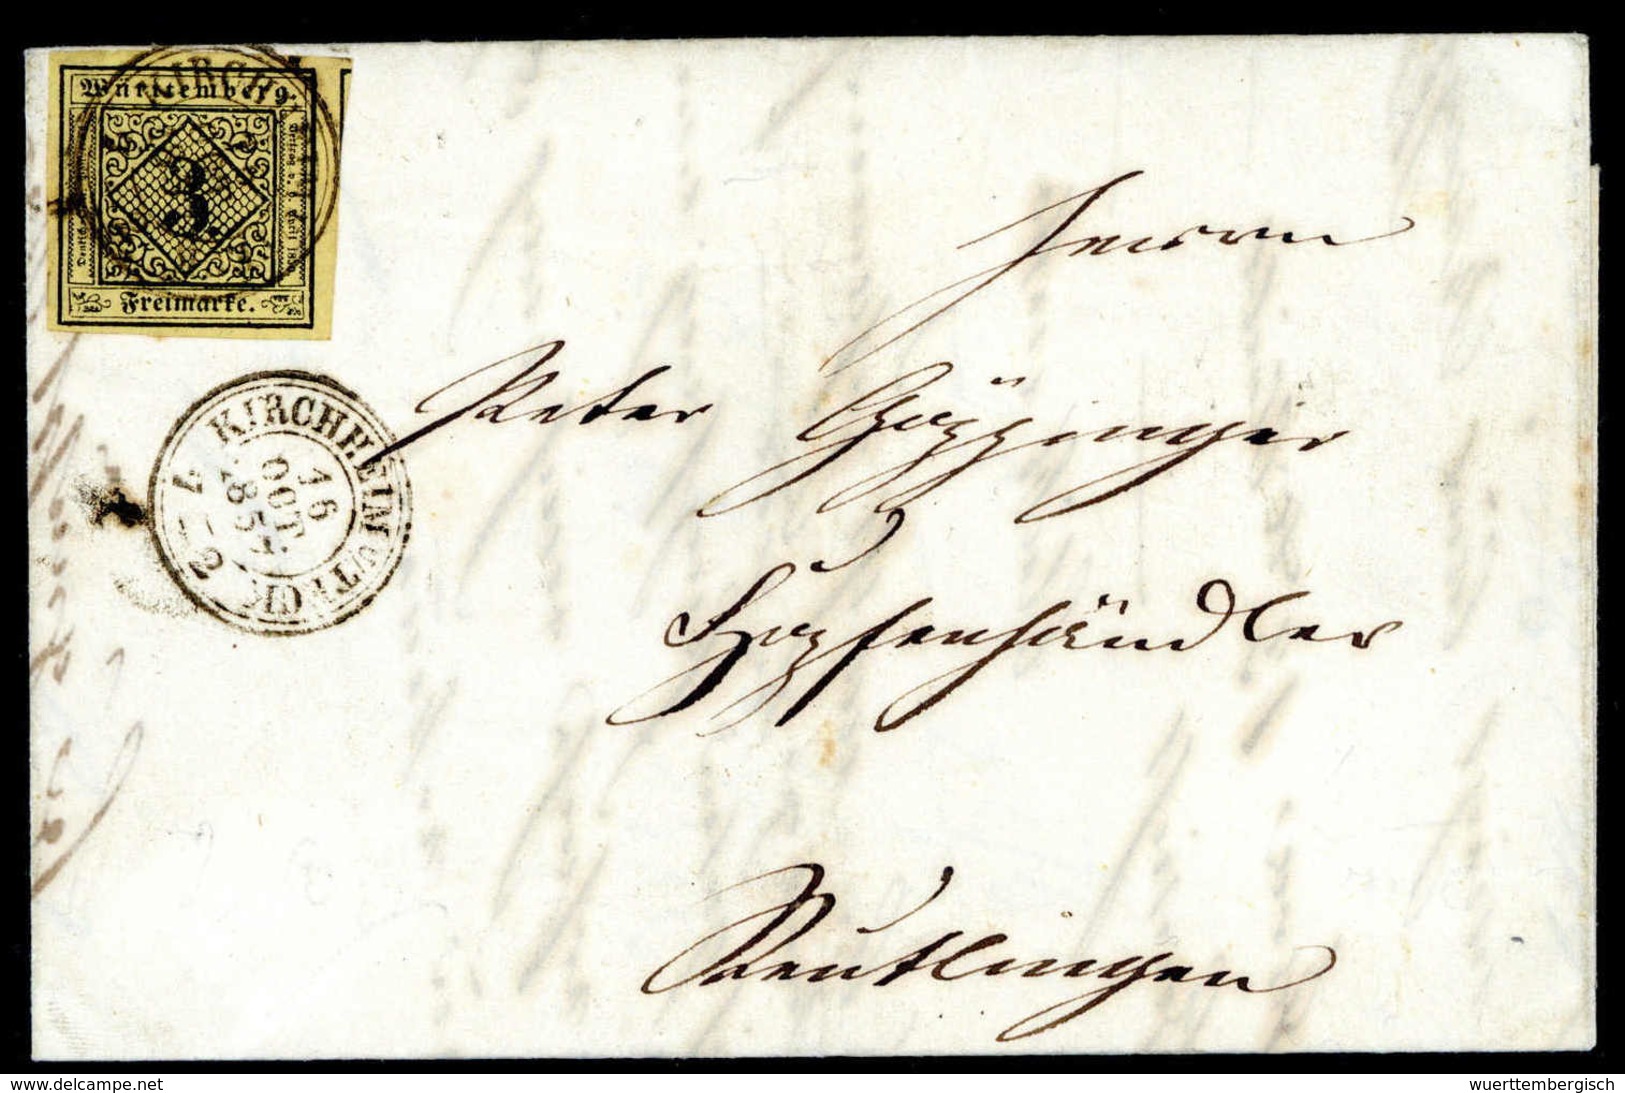 Württemberg.
3.
Freimarke.
KIRCH
KIRCHHEIM U/TECK
16
OCT.
185
Herrn
Peter Göppinger
Hopfenhändler
Reutlingen
www.delcampe.net
wuerttembergisch